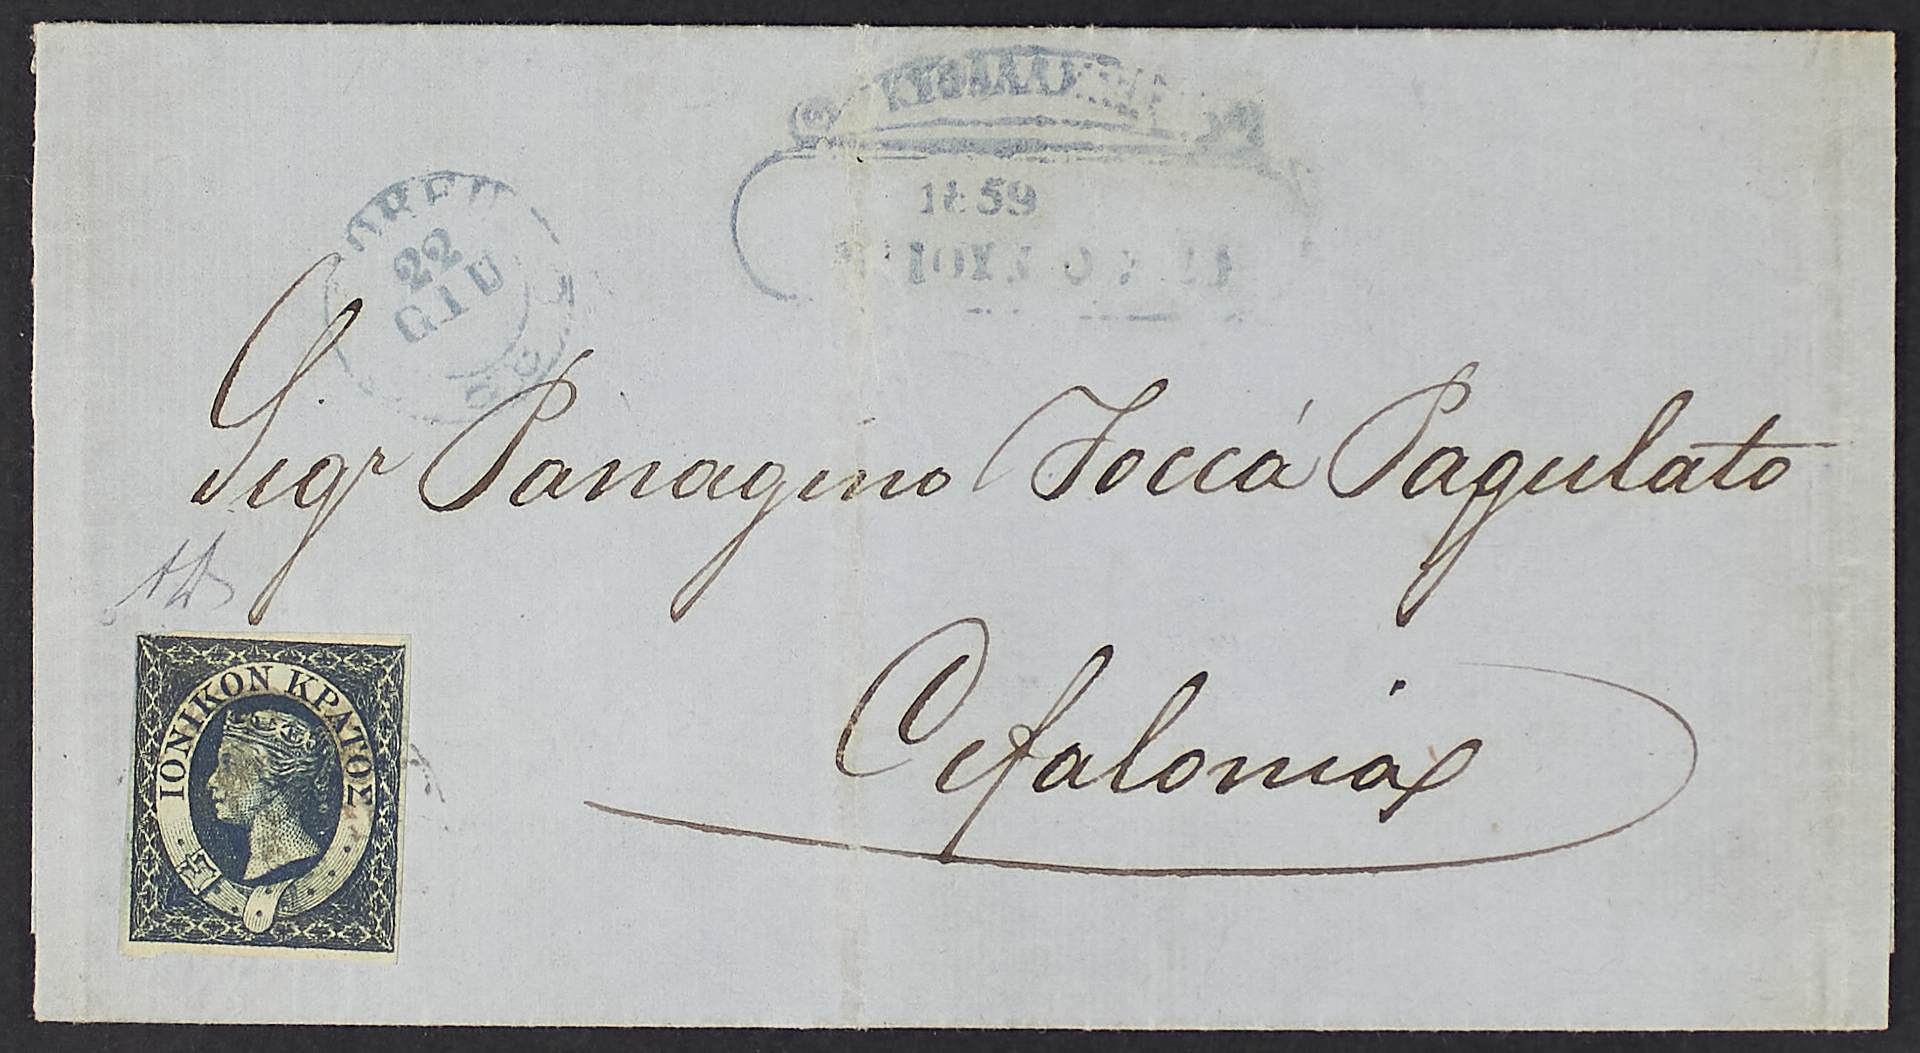 ΚΕΦΑΛΛΗΝΙΑ
1859
22
GIU
Sigr Panagino Toccà Pagulato
Cefalonia
ΙΟΝΙΚΟΝ ΚΡΑΤΟΣ